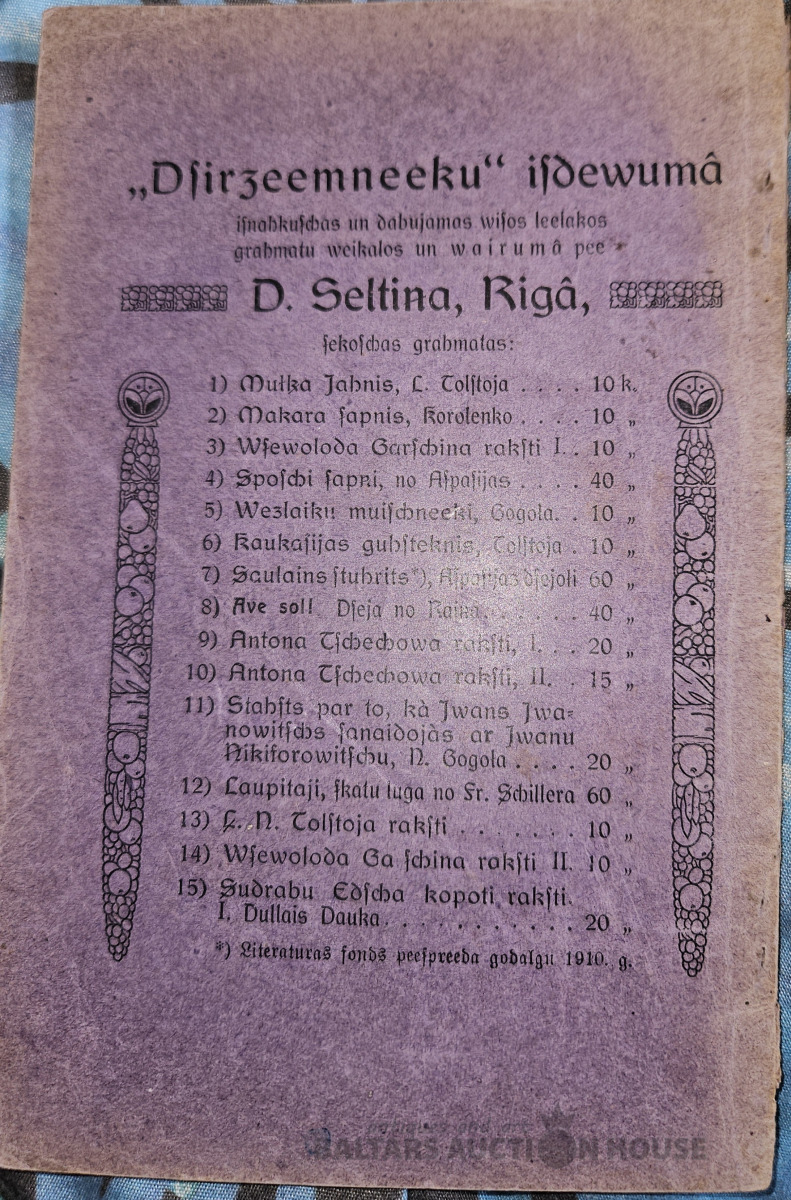 „Dſirzeemneeku“ iſdewumâ
iſnahkuſchas un dabujamas wiſos leelakos
grahmatu weikalos un wairumâ pee
D. Seltina, Rigâ,
ſekoſchas grahmatas:
1) Mułka Jahnis, L. Tolſtoja . . . . 10 k.
2) Makara ſapnis, Korolenko . . . . 10 „
3) Wſewoloda Garſchina rakſti I. . 10 „
4) Spoſchi ſapņi, no Aſpaſijas . . . . 40 „
5) Wezlaiku muiſchneeki, Gogoļa. . 10 „
6) Kaukaſijas guhſteknis, Tolſtoja . 10 „
7) Saulains ſtuhrits*), Aſpaſijas dſejoli 60 „
8) Ave sol! Dſeja no Raiņa. . . . . . 40 „
9) Antona Tſchechowa rakſti, I. . . 20 „
10) Antona Tſchechowa rakſti, II. . 15 „
11) Stahſts par to, kà Jwans Jwa-
nowitſchs ſanaidojàs ar Jwanu
Nikiforowitſchu, N. Gogoļa . . . . 20 „
12) Laupitaji, ſkatu ługa no Fr. Schillera 60 „
13) Ł. N. Tolſtoja rakſti . . . . . . . 10 „
14) Wſewoloda Ga ſchina rakſti II. 10 „
15) Sudrabu Edſcha kopoti rakſti.
I. Dullais Dauka. . . . . . . . . . . 20 „
*) Literaturas fonds peeſpreeda godalgu 1910. g.
BALTARS AUCTION HOUSE